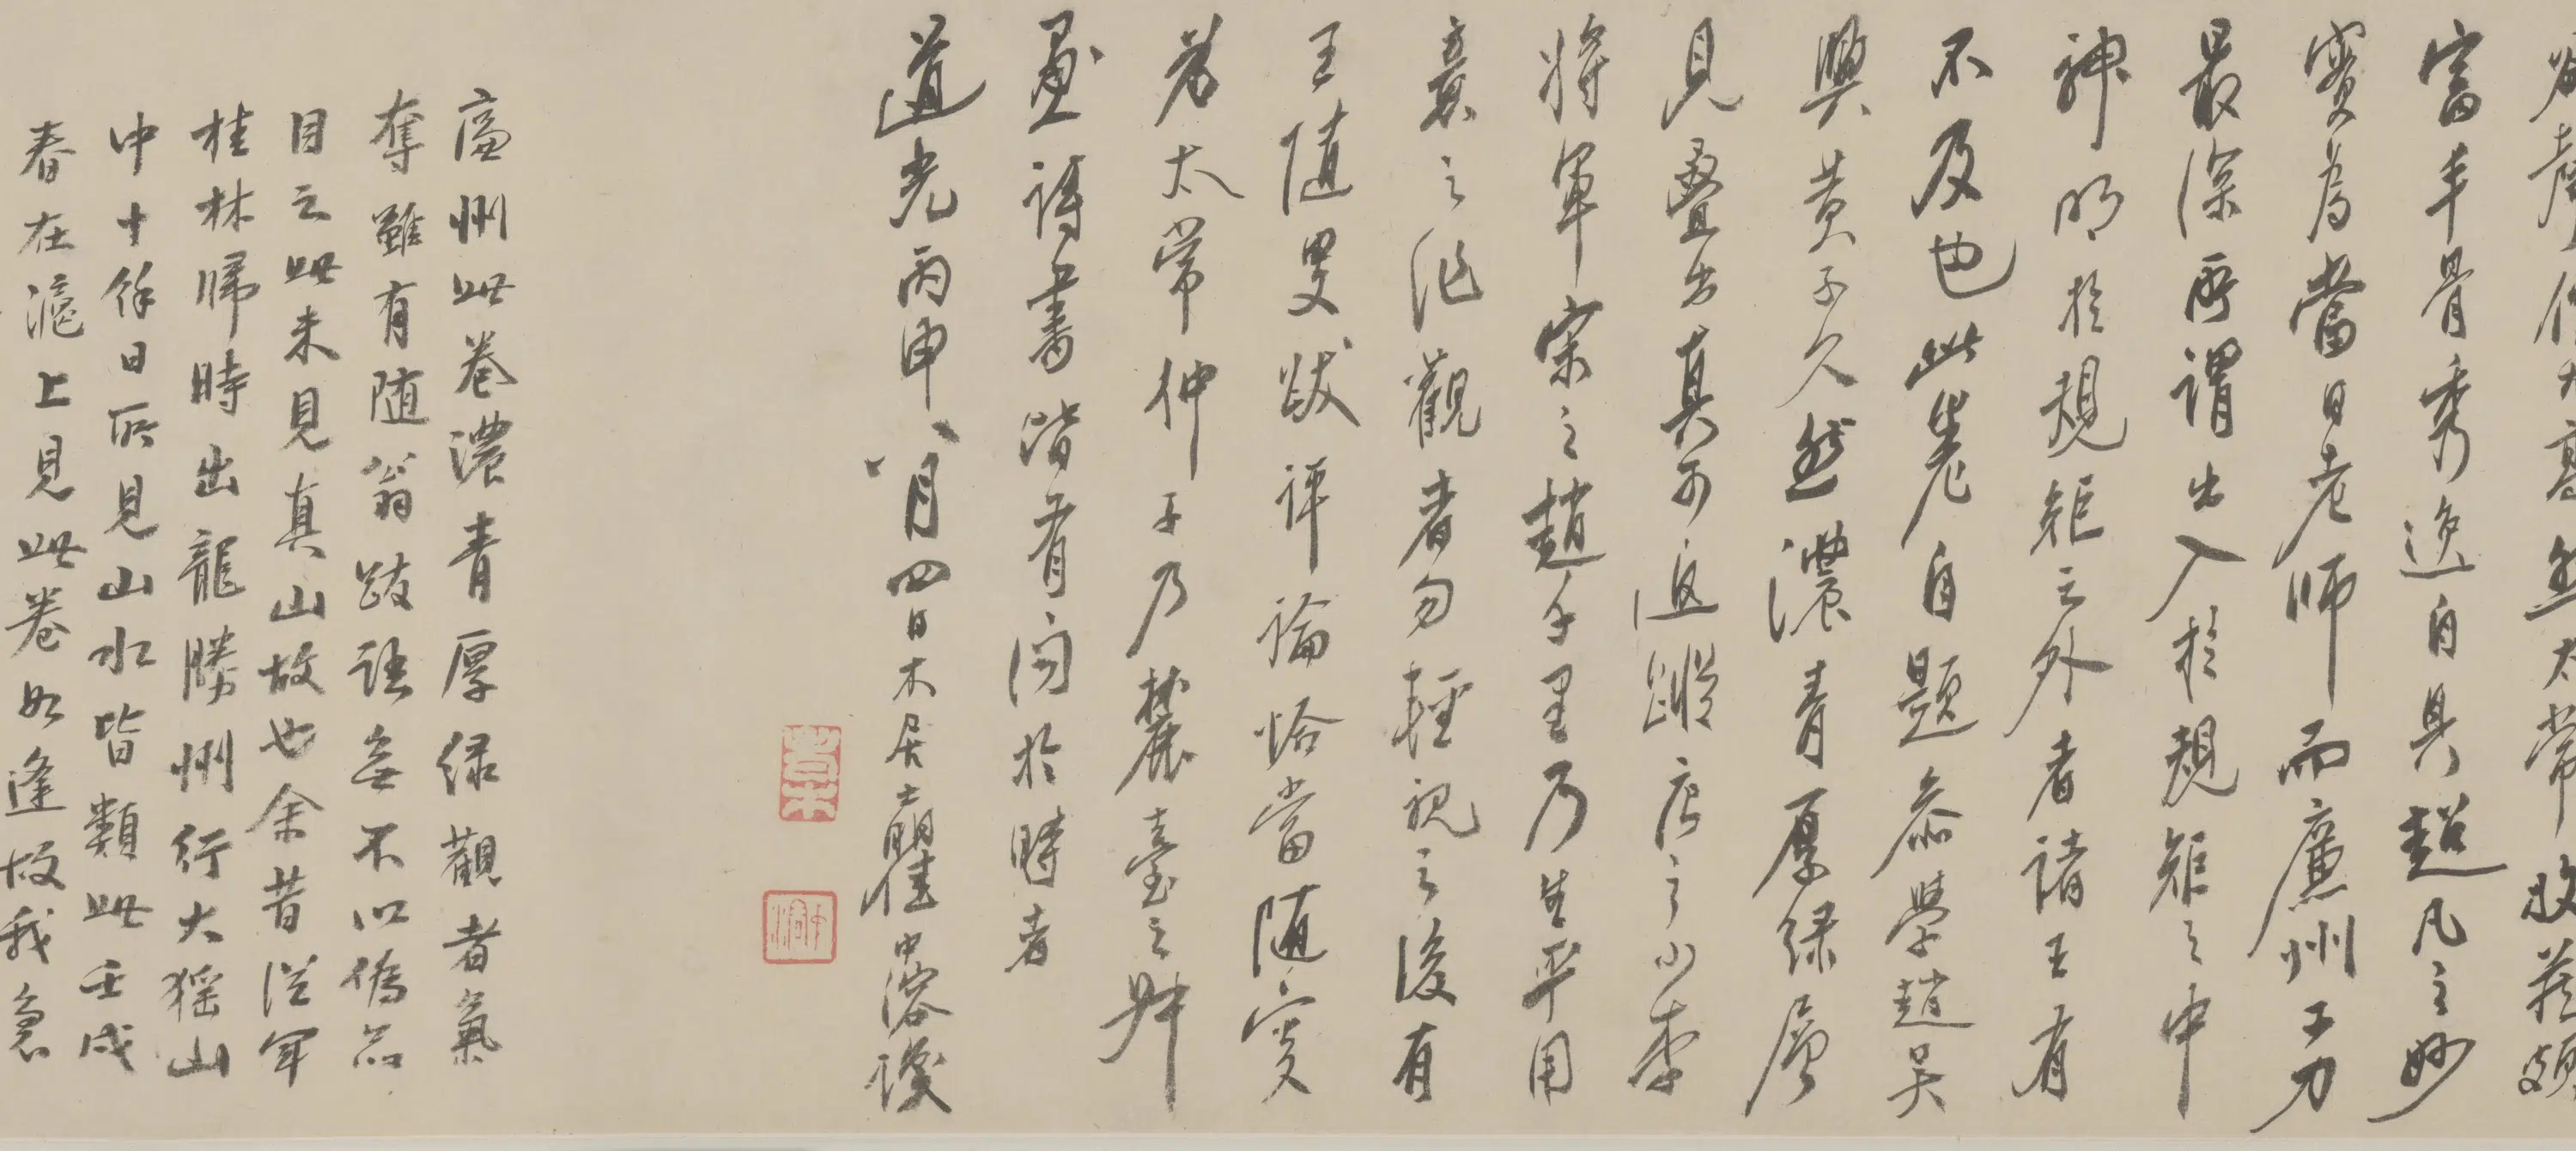 富丰骨秀逸自具超凡之妙
實為當日老師而廉州工力
最深所謂出入於規矩之中
神明於規矩之外者諸王有
不及也此卷自題參學趙吳
興黃子久然濃青厚綠層
見疊出真可追蹤唐之小李
將軍宋之趙千里乃生平用
意之作觀者勿輕視之後有
王隨叟跋評論恰當隨叟
為太常仲子乃麓臺之
畫詩書皆有聞於時者
道光丙申八月四日木居士崔
廉州此卷濃青厚綠觀者氣
奪雖有随翁跋語無不以偽品
目之此未見真山故也余昔從軍
桂林歸時出龍勝州行大猺山
中十餘日所見山水皆類此壬戌
春在滬上見此卷如逢故我急